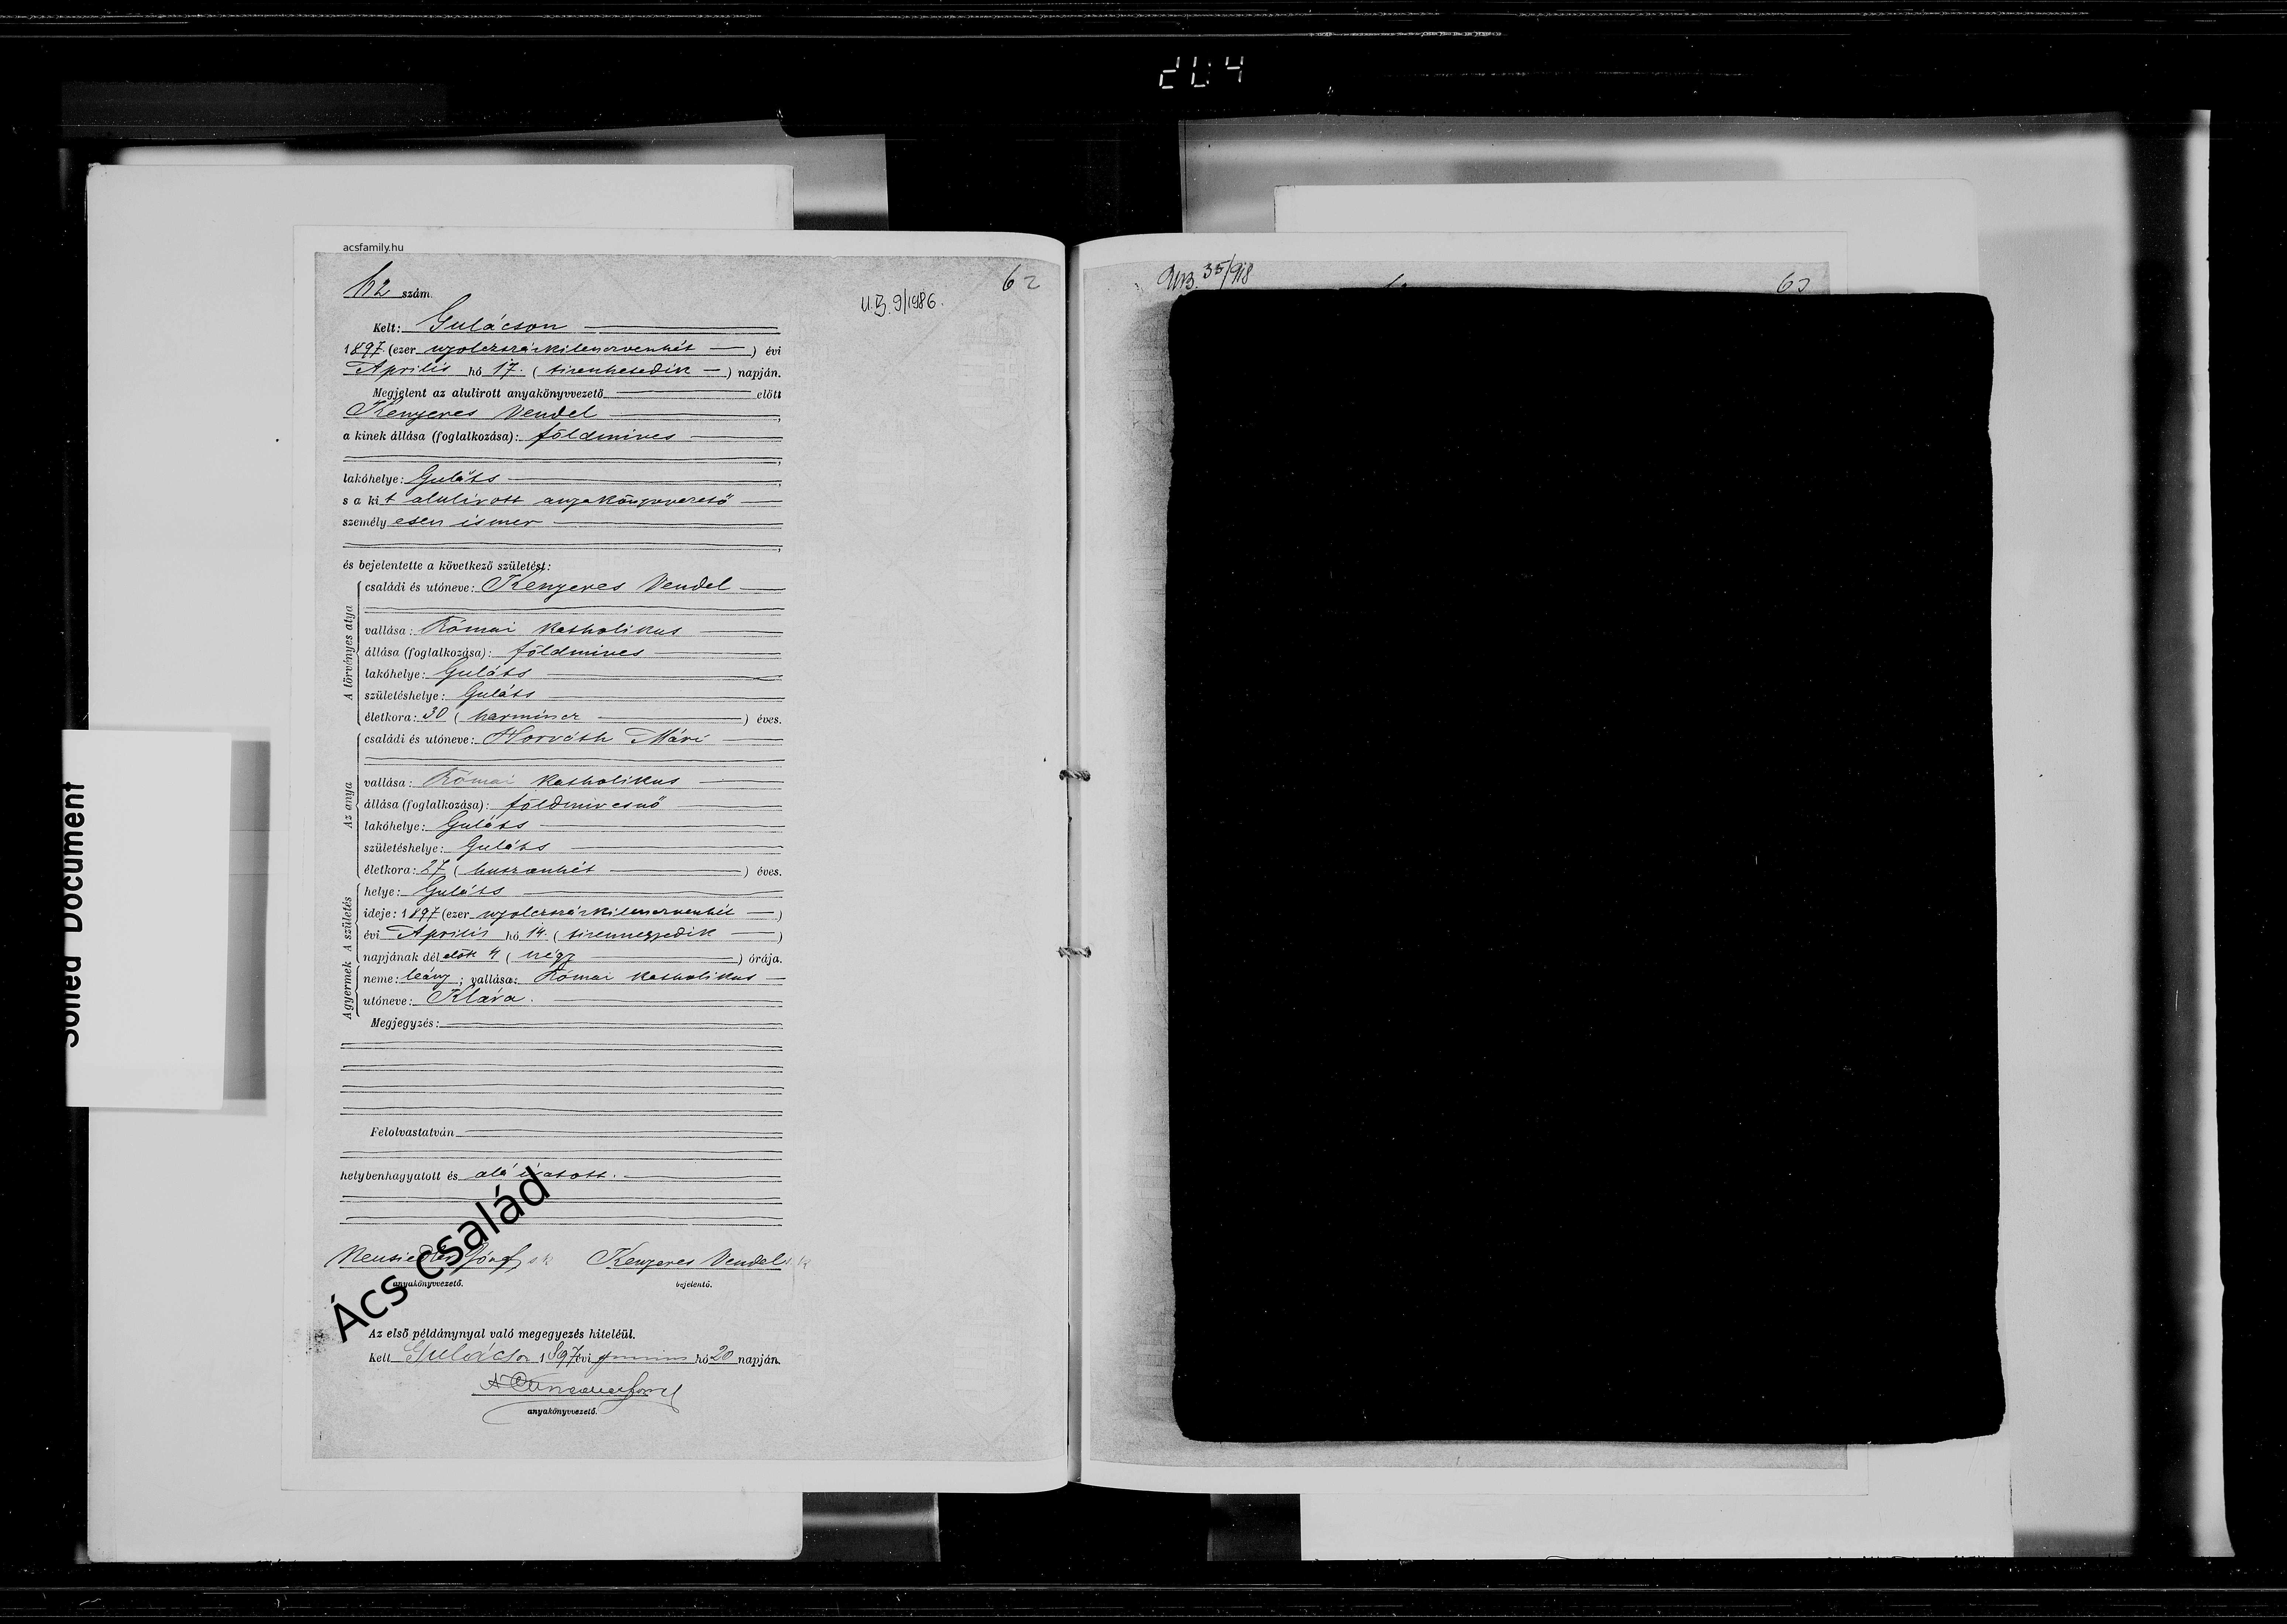 21:4
acsfamily.hu
62 szám.
62
U.B. 9/1986.
Kelt: Gulácson
1897 (ezer nyolczszázkilenczvenhét) évi
Aprilis hó 17. (tizenhetedik) napján.
Megjelent az alulirott anyakönyvvezető előtt
Kenyeres Vendel,
a kinek állása (foglalkozása): földmives
lakóhelye: Gulács,
s a kit alulirott anyakönyvvezető
személyesen ismer
és bejelentette a következő születést:
A törvényes atya
családi és utóneve: Kenyeres Vendel
vallása: Római katholikus
állása (foglalkozása): földmives
lakóhelye: Gulács
születéshelye: Gulács
életkora: 30 (harmincz) éves.
Az anya
családi és utóneve: Horváth Mári
vallása: Római katholikus
állása (foglalkozása): földmivesnő
lakóhelye: Gulács
születéshelye: Gulács
életkora: 27 (huszonhét) éves.
A születés
helye: Gulács
ideje: 1897 (ezer nyolczszázkilenczvenhét)
évi Aprilis hó 14. (tizennegyedik)
napjának délelőtt 4 (négy) órája.
A gyermek
neme: leány; vallása: Római katholikus
utóneve: Klára.
Megjegyzés:
Felolvastatván
helybenhagyatott és aláiratott.
Neusiedler József s k Kenyeres Vendel s k
anyakönyvvezető. bejelentő.
Ács család
Az első példánynyal való megegyezés hiteléül.
Kelt Gulácson 1897 évi junius hó 20 napján.
anyakönyvvezető.
35/918
63
Document